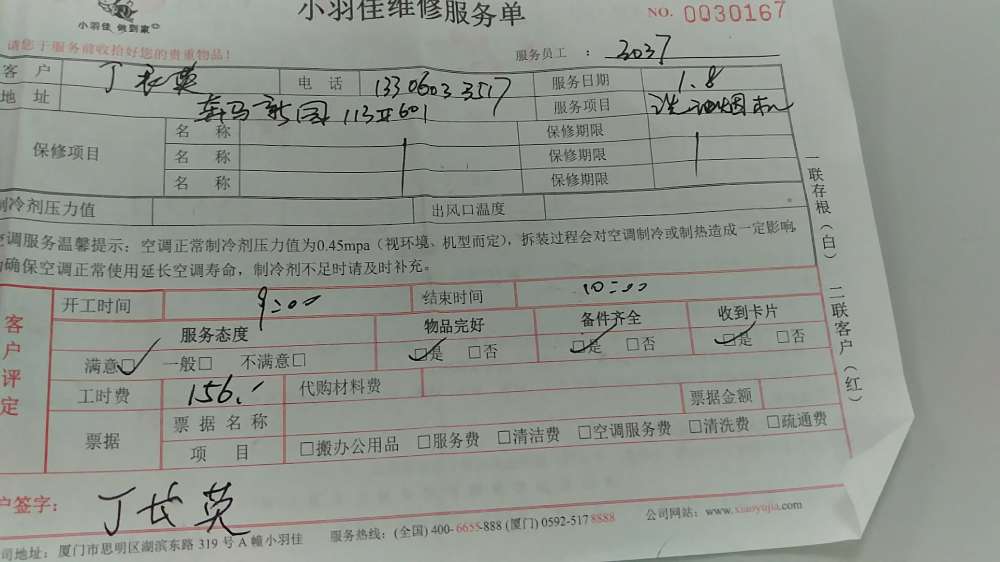 小羽佳维修服务单
NO. 0030167
小羽佳 做到家
请您于服务前收拾好您的贵重物品！ 服务员工 ： 3037
客 户 丁长英 电 话 13306033517 服务日期 1.8
地 址 奔马新园113#601 服务项目 洗油烟机
保修项目 名 称 保修期限
名 称 保修期限
名 称 保修期限
制冷剂压力值 出风口温度
空调服务温馨提示：空调正常制冷剂压力值为0.45mpa（视环境、机型而定），拆装过程会对空调制冷或制热造成一定影响，
确保空调正常使用延长空调寿命，制冷剂不足时请及时补充。
一联存根（白） 二联客户（红）
客户评定
开工时间 9:00 结束时间 10:00
服务态度 物品完好 备件齐全 收到卡片
满意□ 一般□ 不满意□ □是 □否 □是 □否 □是 □否
工时费 156. 代购材料费
票据 票据名称 票据金额
项 目 □搬办公用品 □服务费 □清洁费 □空调服务费 □清洗费 □疏通费
户签字： 丁长英
司地址：厦门市思明区湖滨东路 319 号 A 幢小羽佳 服务热线：(全国) 400-6655-888 (厦门) 0592-5178888 公司网站：www.xiaoyujia.com